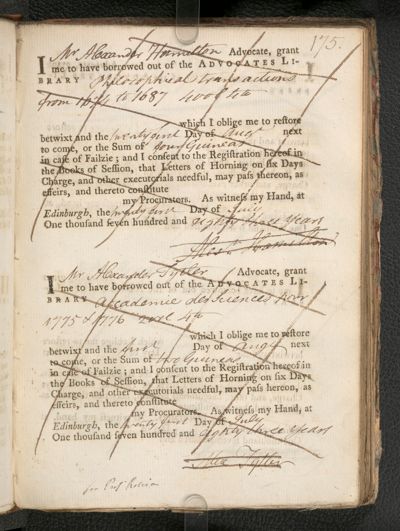 175.
I Mr Alexander Hamilton Advocate, grant
me to have borrowed out of the ADVOCATES LI-
BRARY Philosophical transactions
from 1684 to 1687 4to
which I oblige me to restore
betwixt and the twenty first Day of Augt next
to come, or the Sum of four Guineas
in case of Failzie; and I consent to the Registration hereof in
the Books of Session, that Letters of Horning on six Days
Charge, and other executorials needful, may pass thereon, as
effeirs, and thereto constitute
my Procurators. As witness my Hand, at
Edinburgh, the twenty first Day of July
One thousand seven hundred and eighty three years
Alexr Hamilton
I Mr Alexander Tytler Advocate, grant
me to have borrowed out of the ADVOCATES LI-
BRARY Academie des Sciences for
1775 & 1776 2 vol 4to
which I oblige me to restore
betwixt and the Day of Augt next
to come, or the Sum of two Guineas
in case of Failzie; and I consent to the Registration hereof in
the Books of Session, that Letters of Horning on six Days
Charge, and other executorials needful, may pass thereon, as
effeirs, and thereto constitute
my Procurators. As witness my Hand, at
Edinburgh, the twenty first Day of July
One thousand seven hundred and eighty three years
Alex Tytler
for Prof. Robison